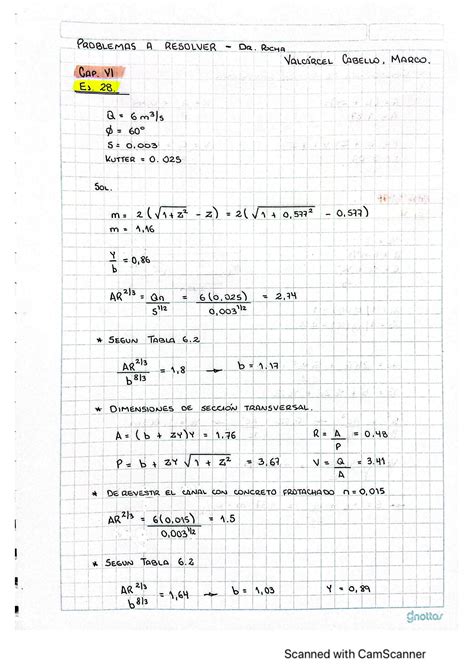 PROBLEMAS A RESOLVER - DR. ROCHA
VALCÁRCEL CABELLO, MARCO.
CAP. VI
EJ. 28.
Q = 6 m³/s
Ø = 60°
S = 0.003
KUTTER = 0.025
SOL.
m = 2 (√1+Z² - Z) = 2(√1 + 0,577² - 0,577)
m = 1,16
Y/b = 0,86
AR^2/3 = Qn/S^1/2 = 6(0,025)/0,003^1/2 = 2,74
* SEGUN TABLA 6.2
AR^2/3 / b^8/3 = 1,8 → b = 1.17
* DIMENSIONES DE SECCIÓN TRANSVERSAL.
A = (b + ZY)Y = 1.76 R = A/P = 0.48
P = b + ZY √1 + Z² = 3.67 V = Q/A = 3.41
* DE REVESTIR EL CANAL CON CONCRETO FROTACHADO n=0,015
AR^2/3 = 6(0,015)/0,003^1/2 = 1.5
* SEGUN TABLA 6.2
AR^2/3 / b^8/3 = 1,64 → b = 1,03 Y = 0,89
gnottas
Scanned with CamScanner